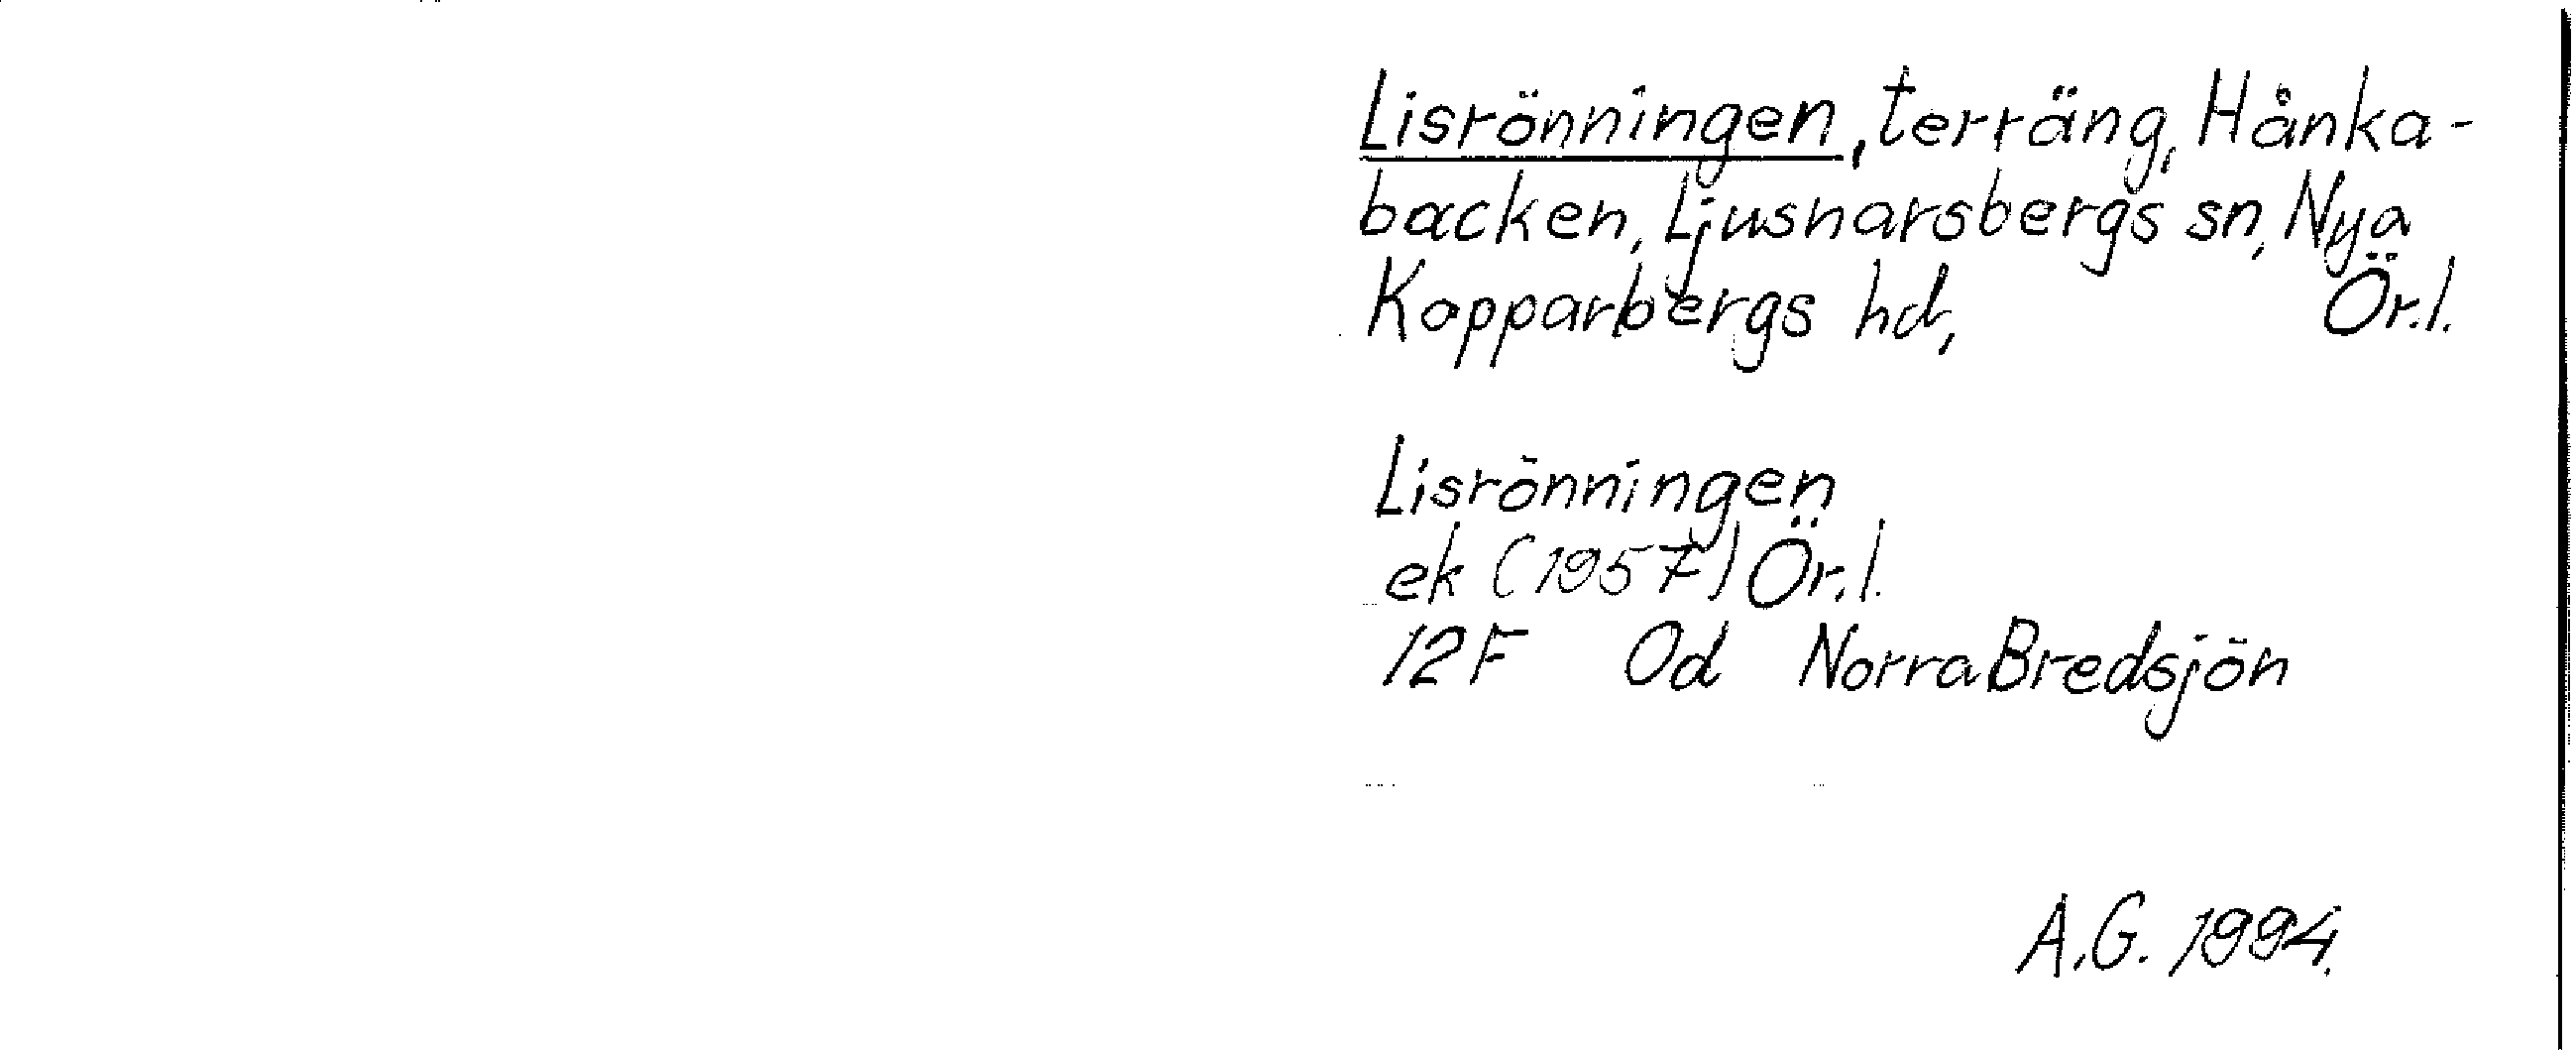 Lisrönningen, terräng, Hånka-
backen, Ljusnarsbergs sn, Nya
Kopparbergs hd, Ör.l.
Lisrönningen
ek (1957) Ör.l.
12F 0d Norra Bredsjön
A.G. 1994.